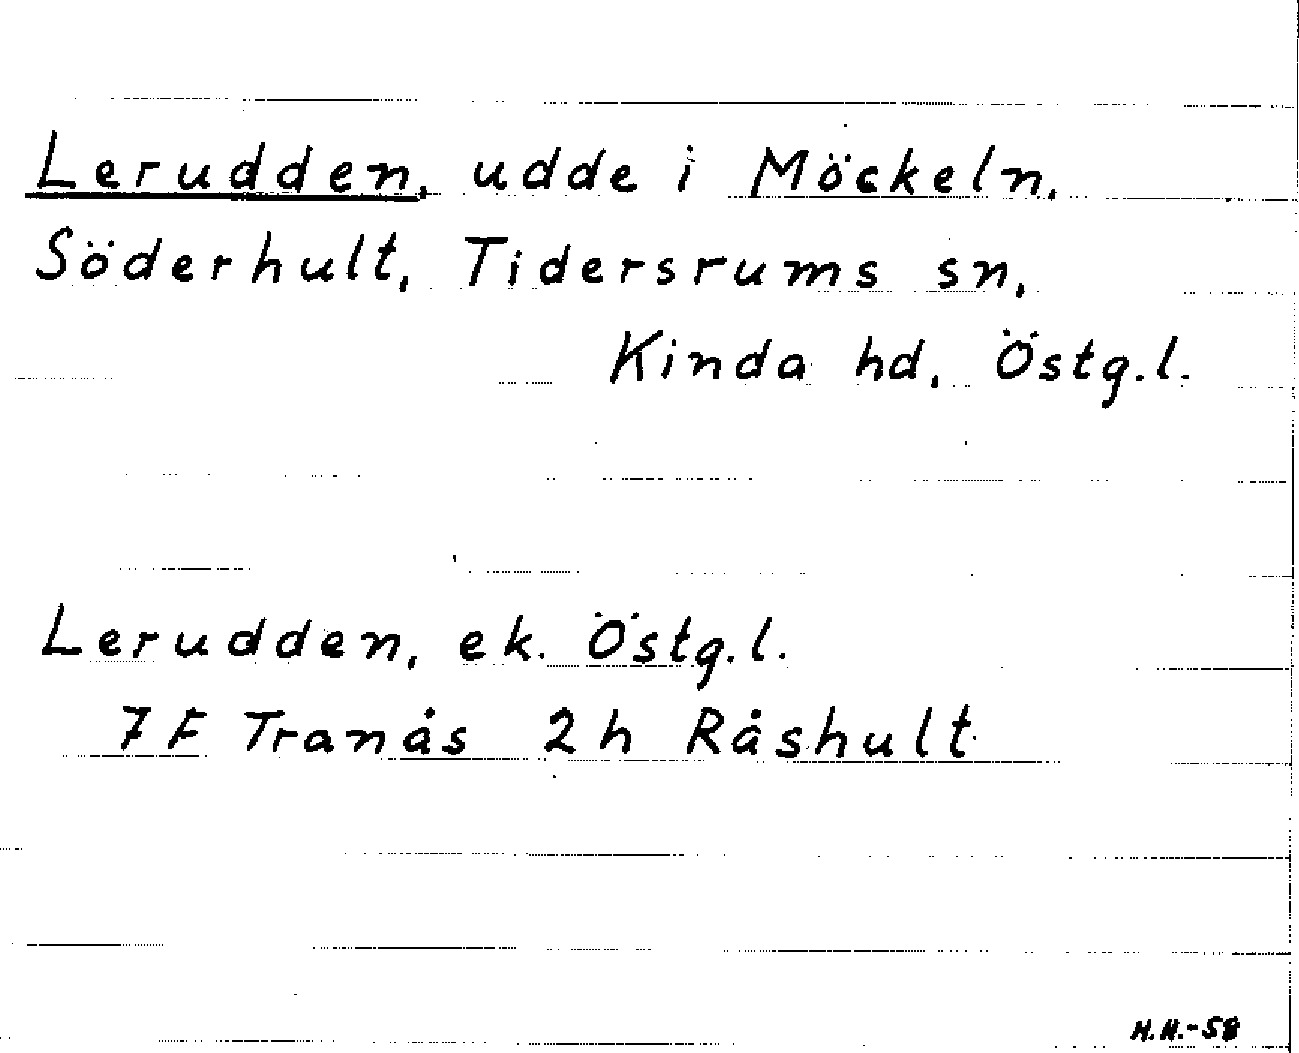 Lerudden, udde i Möckeln,
Söderhult, Tidersrums sn,
Kinda hd, Östg.l.
Lerudden, ek. Östg.l.
7 F Tranås 2 h Råshult
H.H.-58